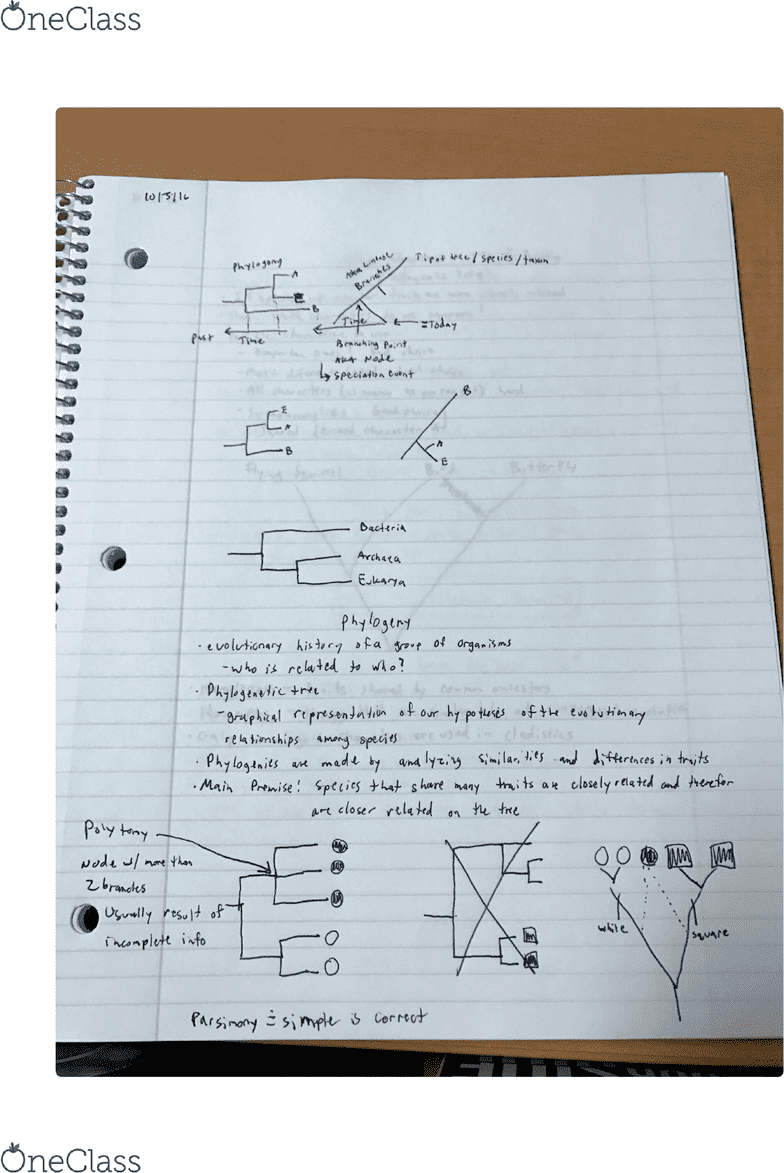 OneClass
10/5/16
Phylogony
A
E
B
Past
Time
AKA Lineage
Branches
Tip of tree / species / taxon
Time
= Today
Branching Point
AKA Node
↳ speciation event
E
A
B
B
A
E
Bacteria
Archaea
Eukarya
Phylogeny
· evolutionary history of a group of organisms
- who is related to who?
· Phylogenetic tree
- graphical representation of our hypotheses of the evolutionary
relationships among species
· Phylogenies are made by analyzing similarities and differences in traits
· Main Premise: species that share many traits are closely related and therefor
are closer related on the tree
Polytomy
Node w/ more than
2 branches
Usually result of
incomplete info
white
square
Parsimony = simple is correct
OneClass